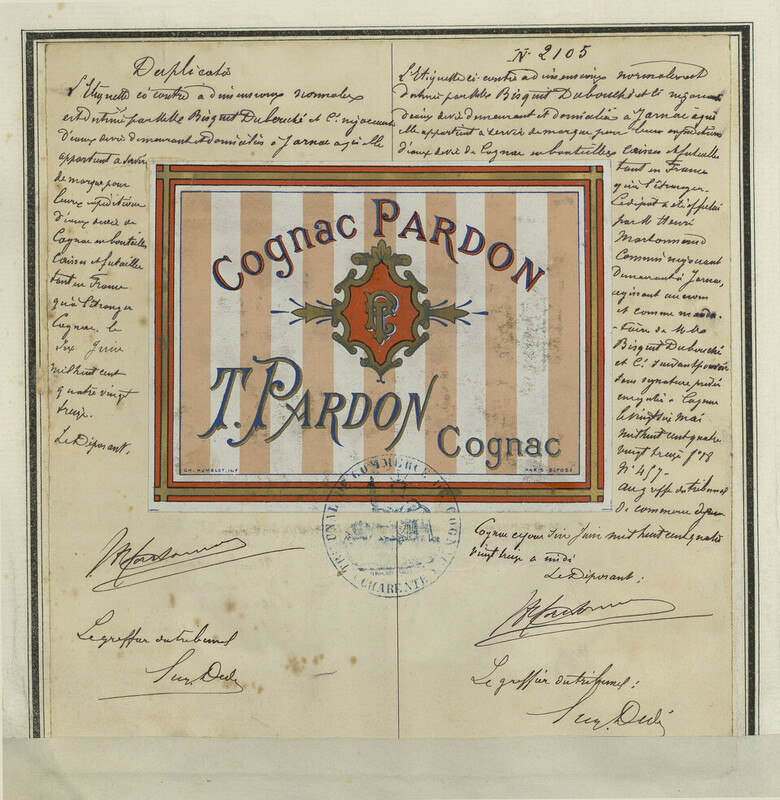 Duplicata
L'Etiquette ci contre a dimensions normales
est destinée par Melle Bisquit Dubouché et Cie négociants
d'eaux de vie demeurant et domiciliés à Jarnac agie elle
appartient à servir
de marque pour
leurs expéditions
d'eaux de vie de
Cognac en bouteilles
Caisses et futailles
tant en France
qu'à l'étranger
Cognac, le
six Juin
mil huit cent
quatre vingt
treize.
Le Déposant,
Le greffier du tribunal
No 2105
L'Etiquette ci-contre a dimensions normales est
destinée par Melle Bisquit Dubouché et Cie négociants
d'eaux de vie demeurant et domiciliés à Jarnac
elle appartient à servir de marque pour leurs expéditions
d'eaux de vie de Cognac en bouteilles caisses et futailles
tant en France
qu'à l'étranger.
Ce dépôt a été effectué
par M Henri
Commis négociant
demeurant à Jarnac,
agissant au nom
et comme manda-
-taire de Melle
Bisquit Dubouché
et Cie suivant pouvoir
sous signature privée
enregistré à Cognac
le vingt six mai
mil huit cent quatre
vingt treize fo 78
No 457-
au greffe du tribunal
de commerce de
Cognac ce jour six Juin mil huit cent quatre
vingt treize à midi
Le Déposant :
Le greffier du tribunal :
Cognac PARDON
T. PARDON
Cognac
CH. HUMBLOT, IMP.
PARIS - DÉPOSÉ
TRIBUNAL DE COMMERCE DE COGNAC
(CHARENTE)